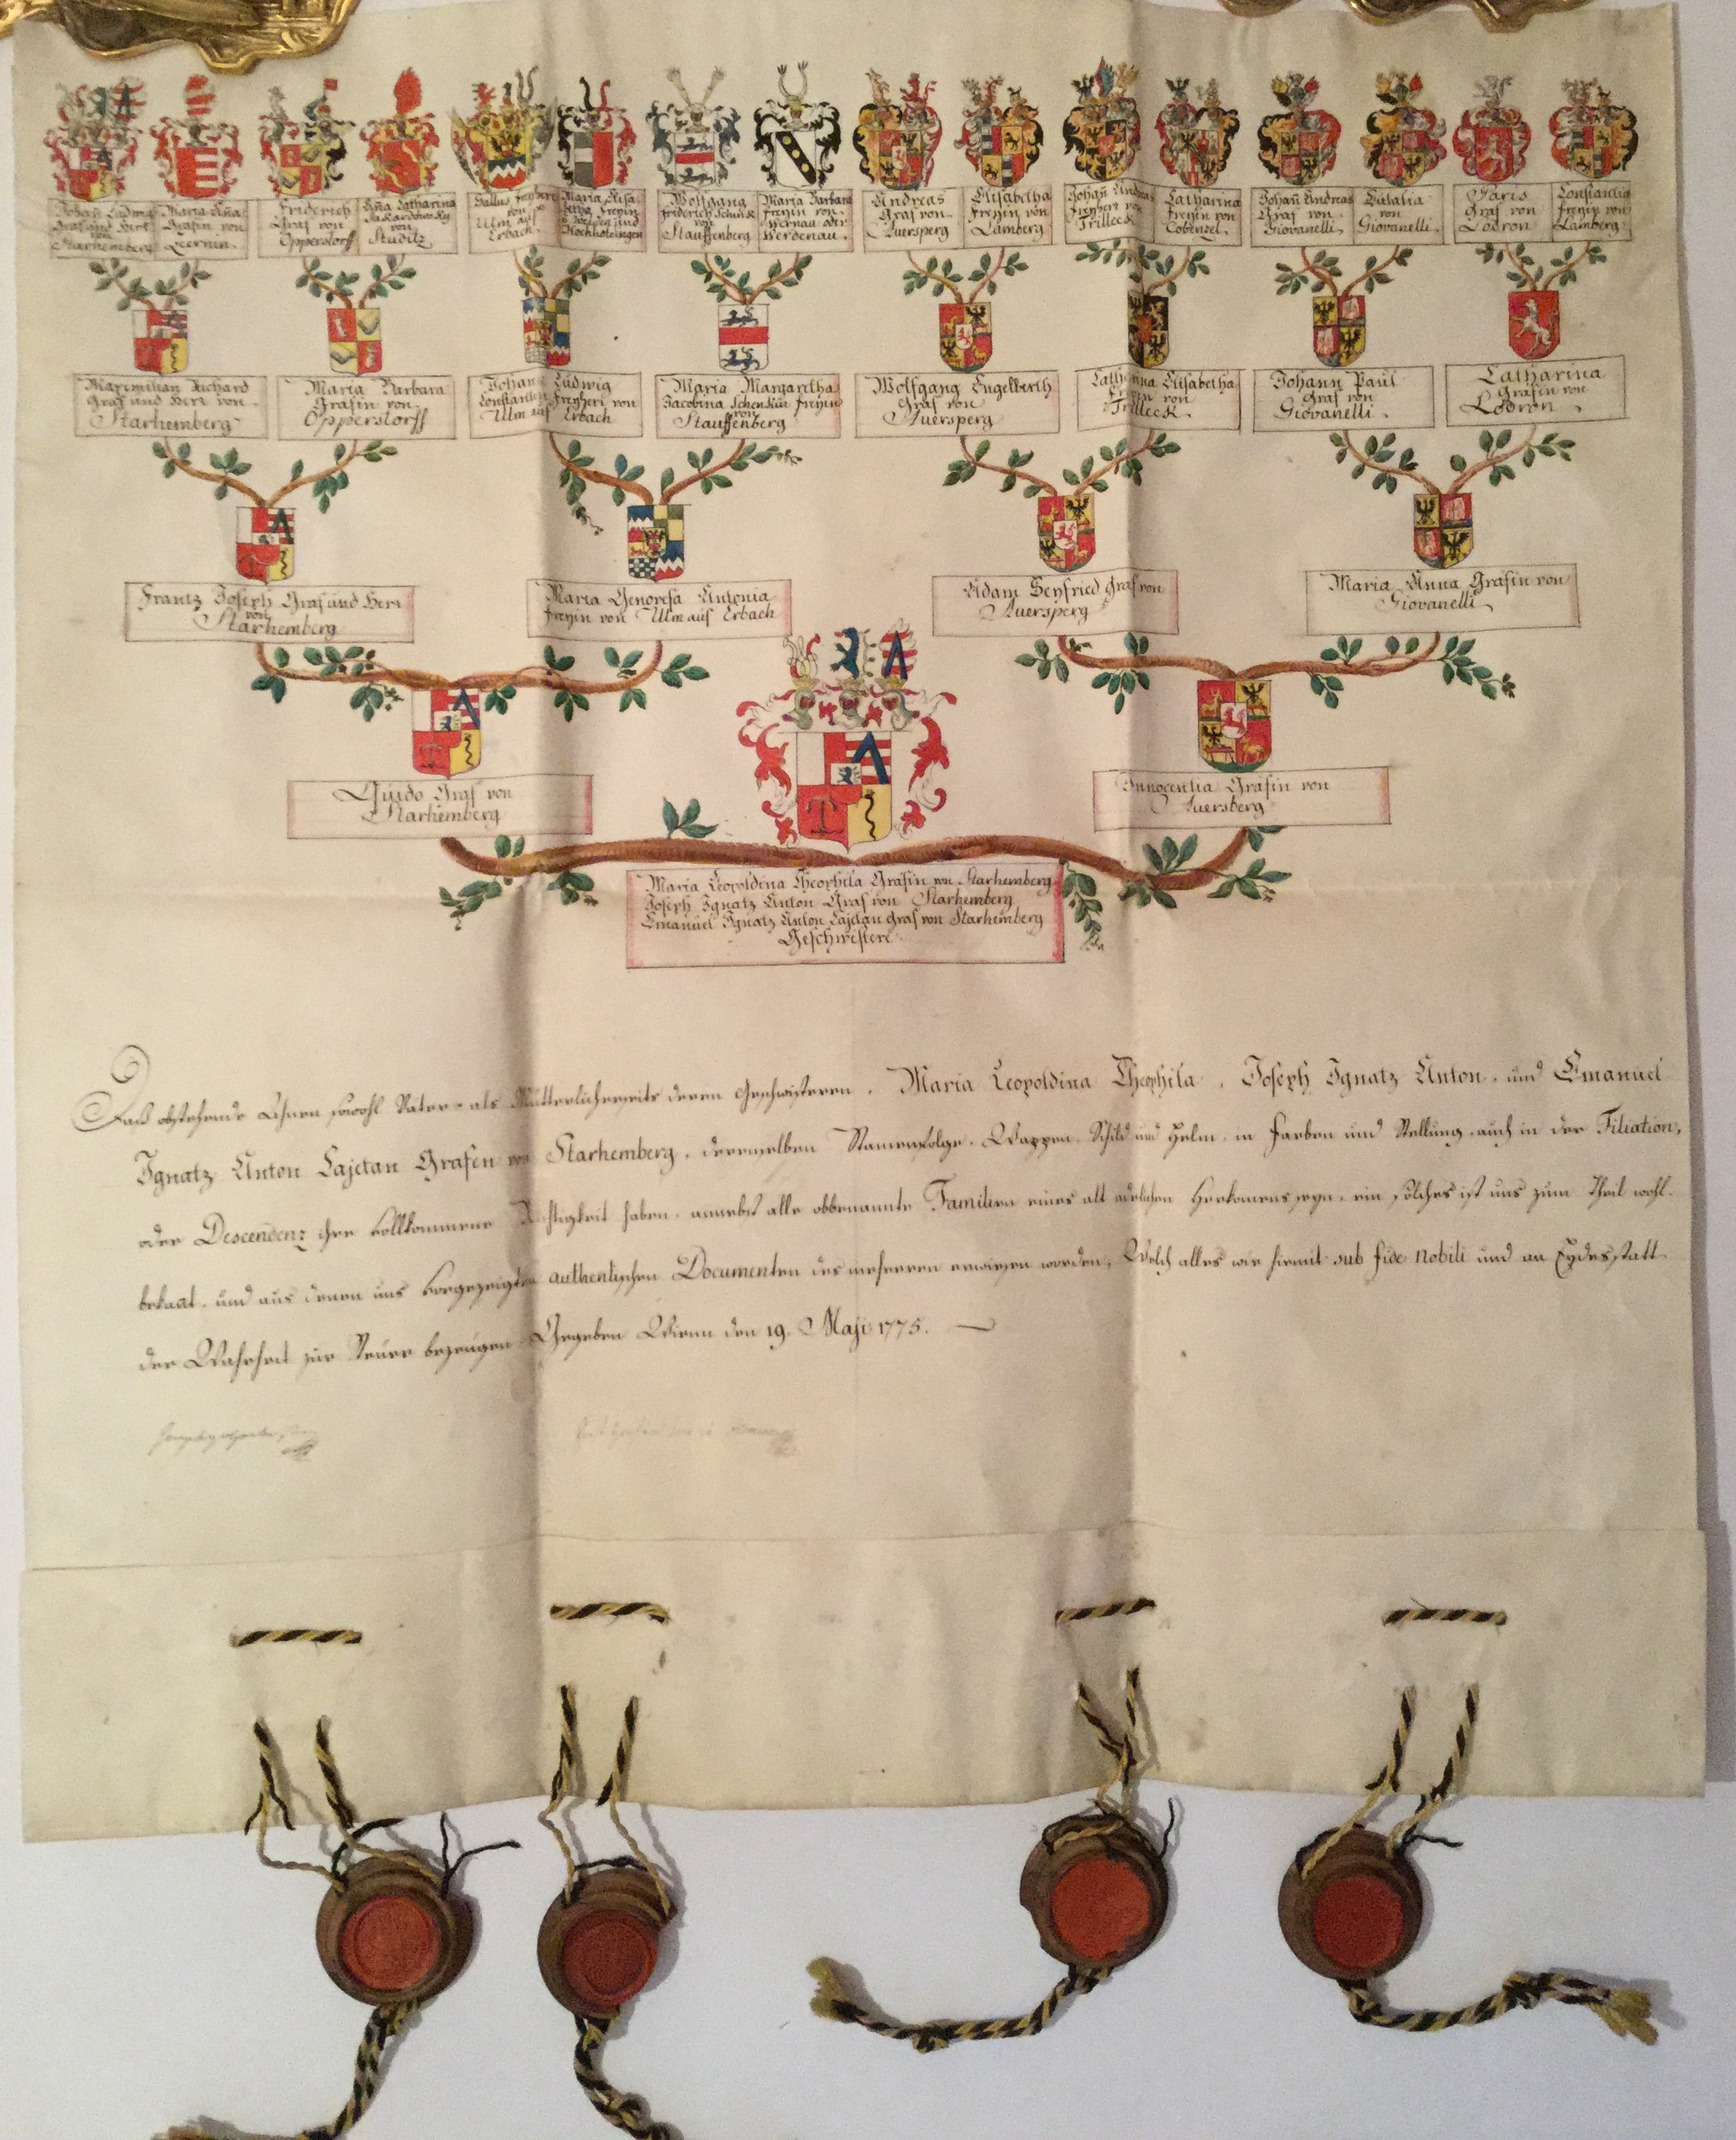 Johañ Ludwig
Graf und Herr
von
Starhemberg
Maria Añа
Gräfin von
Friderich
Graf von
Oppersdorff
Añа Catharina
von
Studitz
Gallus Freyherr
von
Ulm auf
Erbach
Maria Elisa
betha Freyin
und
Hochholtingen
Wolfgang
Friderich Schenk
von
Stauffenberg
Maria Barbara
Freyin von
Wernau oder
Werdenau
Andreas
Graf von
Auersperg
Elisabetha
Freyin von
Lamberg
Johañ Andreas
Freyherr von
Trilleck
Catharina
Freyin von
Cobenzel
Johañ Andreas
Graf von
Giovanelli
Eulalia
von
Giovanelli
Paris
Graf von
Lodron
Constantia
Freyin von
Lamberg
Maximilian Richard
Graf und Herr von
Starhemberg
Maria Barbara
Gräfin von
Oppersdorff
Johann Ludwig
Constantin Freyherr von
Ulm auf Erbach
Maria Margaretha
Jacobina Schenkin Freyin
von
Stauffenberg
Wolfgang Engelberth
Graf von
Auersperg
Catharina Elisabetha
Freyin von
Trilleck
Johann Paul
Graf von
Giovanelli
Catharina
Gräfin von
Lodron
Frantz Joseph Graf und Herr
von
Starhemberg
Maria Genovefa Antonia
Freyin von Ulm auf Erbach
Adam Seyfried Graf von
Auersperg
Maria Anna Gräfin von
Giovanelli
Guido Graf von
Starhemberg
Innocentia Gräfin von
Auersberg
Maria Leopoldina Theophila Gräfin von Starhemberg
Joseph Ignatz Anton Graf von Starhemberg
Emanuel Ignatz Anton Cajetan Graf von Starhemberg
Geschwistere
Daß obstehende Ahnen sowohl Vater- als Mütterlicherseits deren Geschwisteren, Maria Leopoldina Theophila, Joseph Ignatz Anton, und Emanuel
Ignatz Anton Cajetan Grafen von Starhemberg, deroselben Stammenfolge, Wappen, Schild und Helm, in Farben und Stellung, auch in der Filiation,
oder Descendenz ihre vollkommene Richtigkeit haben, annebst alle obbenannte Familien eines alt adelichen Herkomens seyn, ein solches ist uns zum Theil wohl
bekañt, und aus denen uns vorgezeigten authentischen Documenten des mehreren erwiesen worden; Welch alles wir hiemit sub fide nobili und an Eydesstatt
der Wahrheit zur Steuer bezeugen. Gegeben Wienn den 19. Maji 1775.